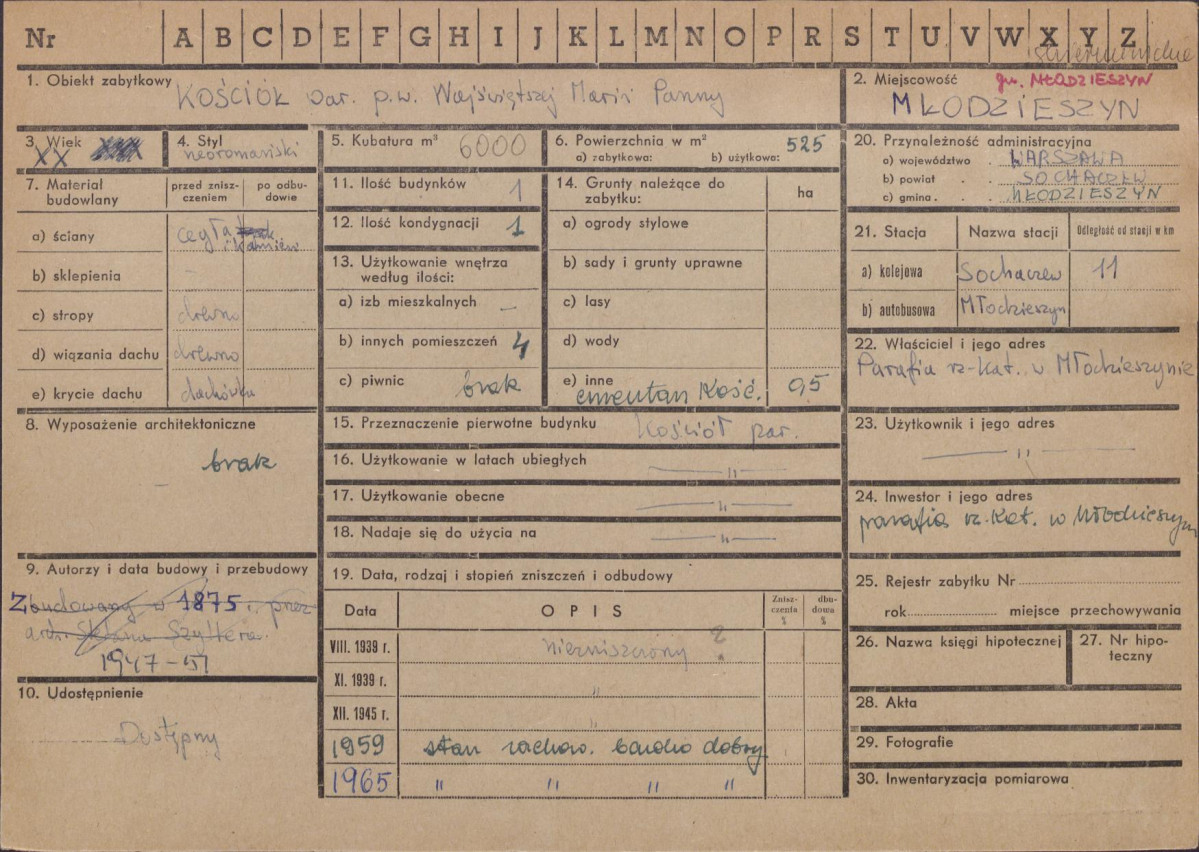 Nr A B C D E F G H I J K L M N O P R S T U V W X Y Z
skierniewickie
1. Obiekt zabytkowy KOŚCIÓŁ par. p.w. Najświętszej Marii Panny
2. Miejscowość gm. MŁODZIESZYN
MŁODZIESZYN
3. Wiek
XX
4. Styl
neoromański
5. Kubatura m³ 6000
6. Powierzchnia w m²
a) zabytkowa: b) użytkowa: 525
7. Materiał budowlany
przed znisz-
czeniem
po odbu-
dowie
a) ściany cegła
i kamień
b) sklepienia -
c) stropy drewno
d) wiązania dachu drewno
e) krycie dachu dachówka
8. Wyposażenie architektoniczne
brak
9. Autorzy i data budowy i przebudowy
Zbudowany w 1875 r. przez
arch. Stefana Szyllera.
1947-51
10. Udostępnienie
Dostępny
11. Ilość budynków 1
12. Ilość kondygnacji 1
13. Użytkowanie wnętrza
według ilości:
a) izb mieszkalnych -
b) innych pomieszczeń 4
c) piwnic brak
14. Grunty należące do
zabytku:
ha
a) ogrody stylowe
b) sady i grunty uprawne
c) lasy
d) wody
e) inne
cmentarz Kość. 0,5
15. Przeznaczenie pierwotne budynku Kościół par.
16. Użytkowanie w latach ubiegłych — " —
17. Użytkowanie obecne — " —
18. Nadaje się do użycia na — " —
19. Data, rodzaj i stopień zniszczeń i odbudowy
Data OPIS
Znisz-
czenia
%
dbu-
dowa
%
VIII. 1939 r. niezniszczony ?
XI. 1939 r. "
XII. 1945 r. "
1959 stan zachow. bardzo dobry
1965 " " " "
20. Przynależność administracyjna
a) województwo . WARSZAWA
b) powiat . . SOCHACZEW
c) gmina . . . MŁODZIESZYN
21. Stacja Nazwa stacji Odległość od stacji w km
a) kolejowa Sochaczew 11
b) autobusowa Młodzieszyn
22. Właściciel i jego adres
Parafia rz-kat. w Młodzieszynie
23. Użytkownik i jego adres
— " —
24. Inwestor i jego adres
parafia rz.kat. w Młodzieszyn
25. Rejestr zabytku Nr
rok miejsce przechowywania
26. Nazwa księgi hipotecznej
27. Nr hipo-
teczny
28. Akta
29. Fotografie
30. Inwentaryzacja pomiarowa